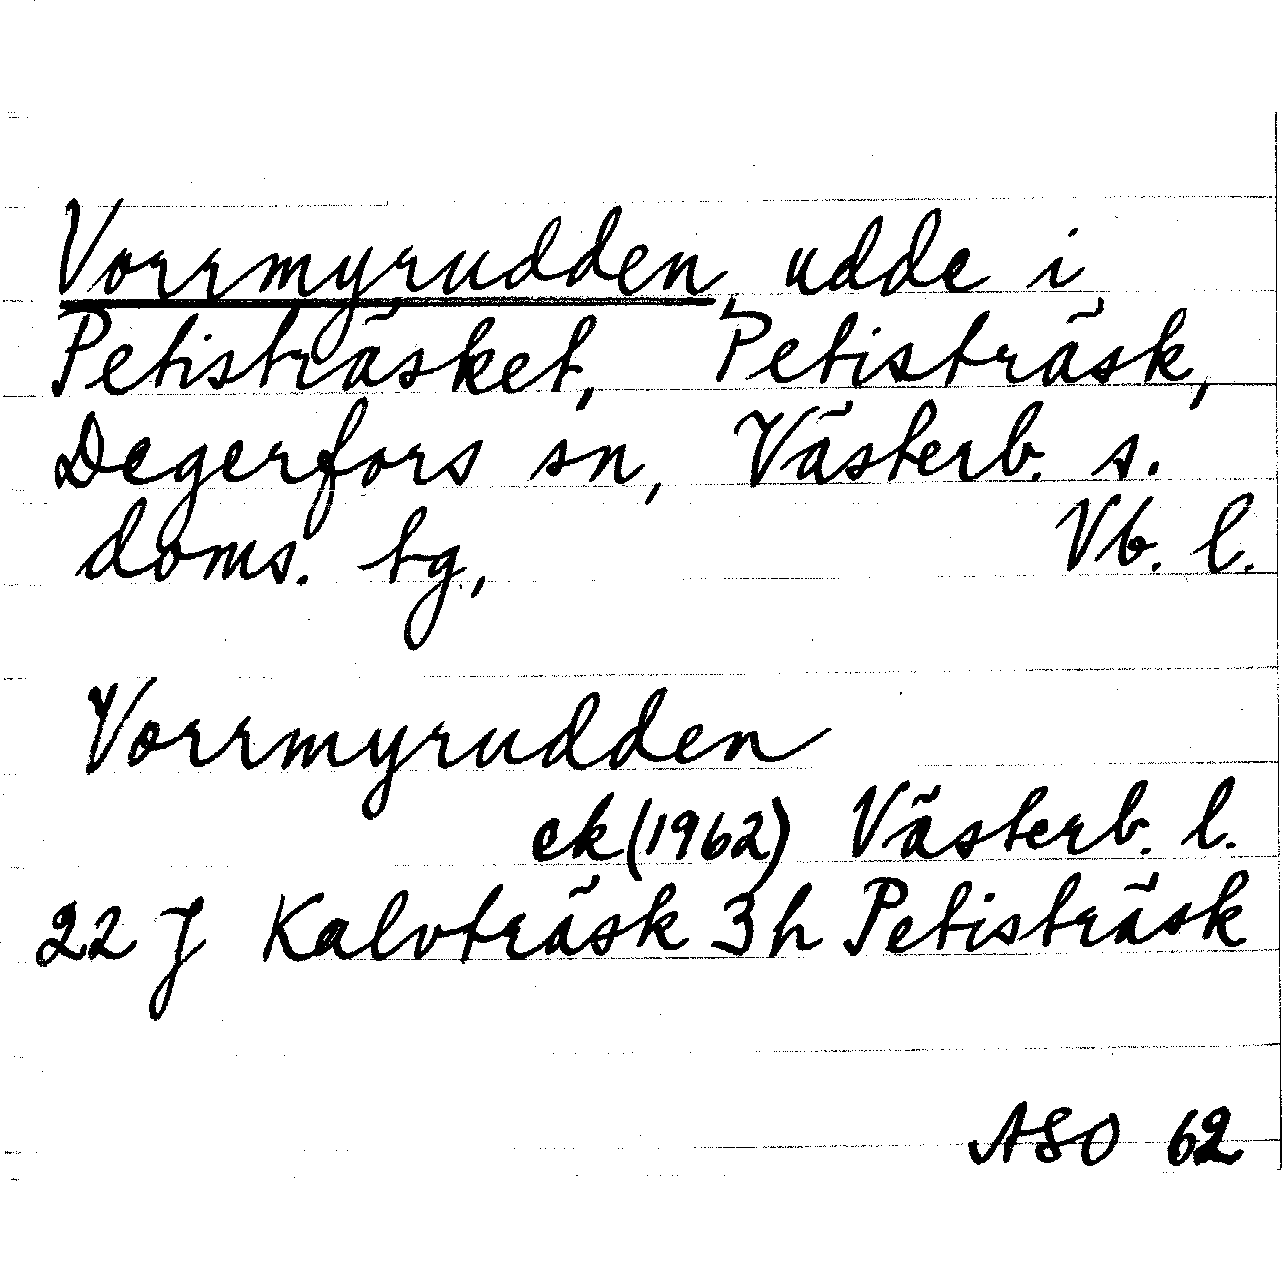 Vorrmyrudden, udde i
Petisträsket, Petisträsk,
Degerfors sn, Västerb. s.
doms. tg, Vb. l.
Vorrmyrudden
ek (1962) Västerb. l.
22 J Kalvträsk 3 h Petisträsk
ASO 62